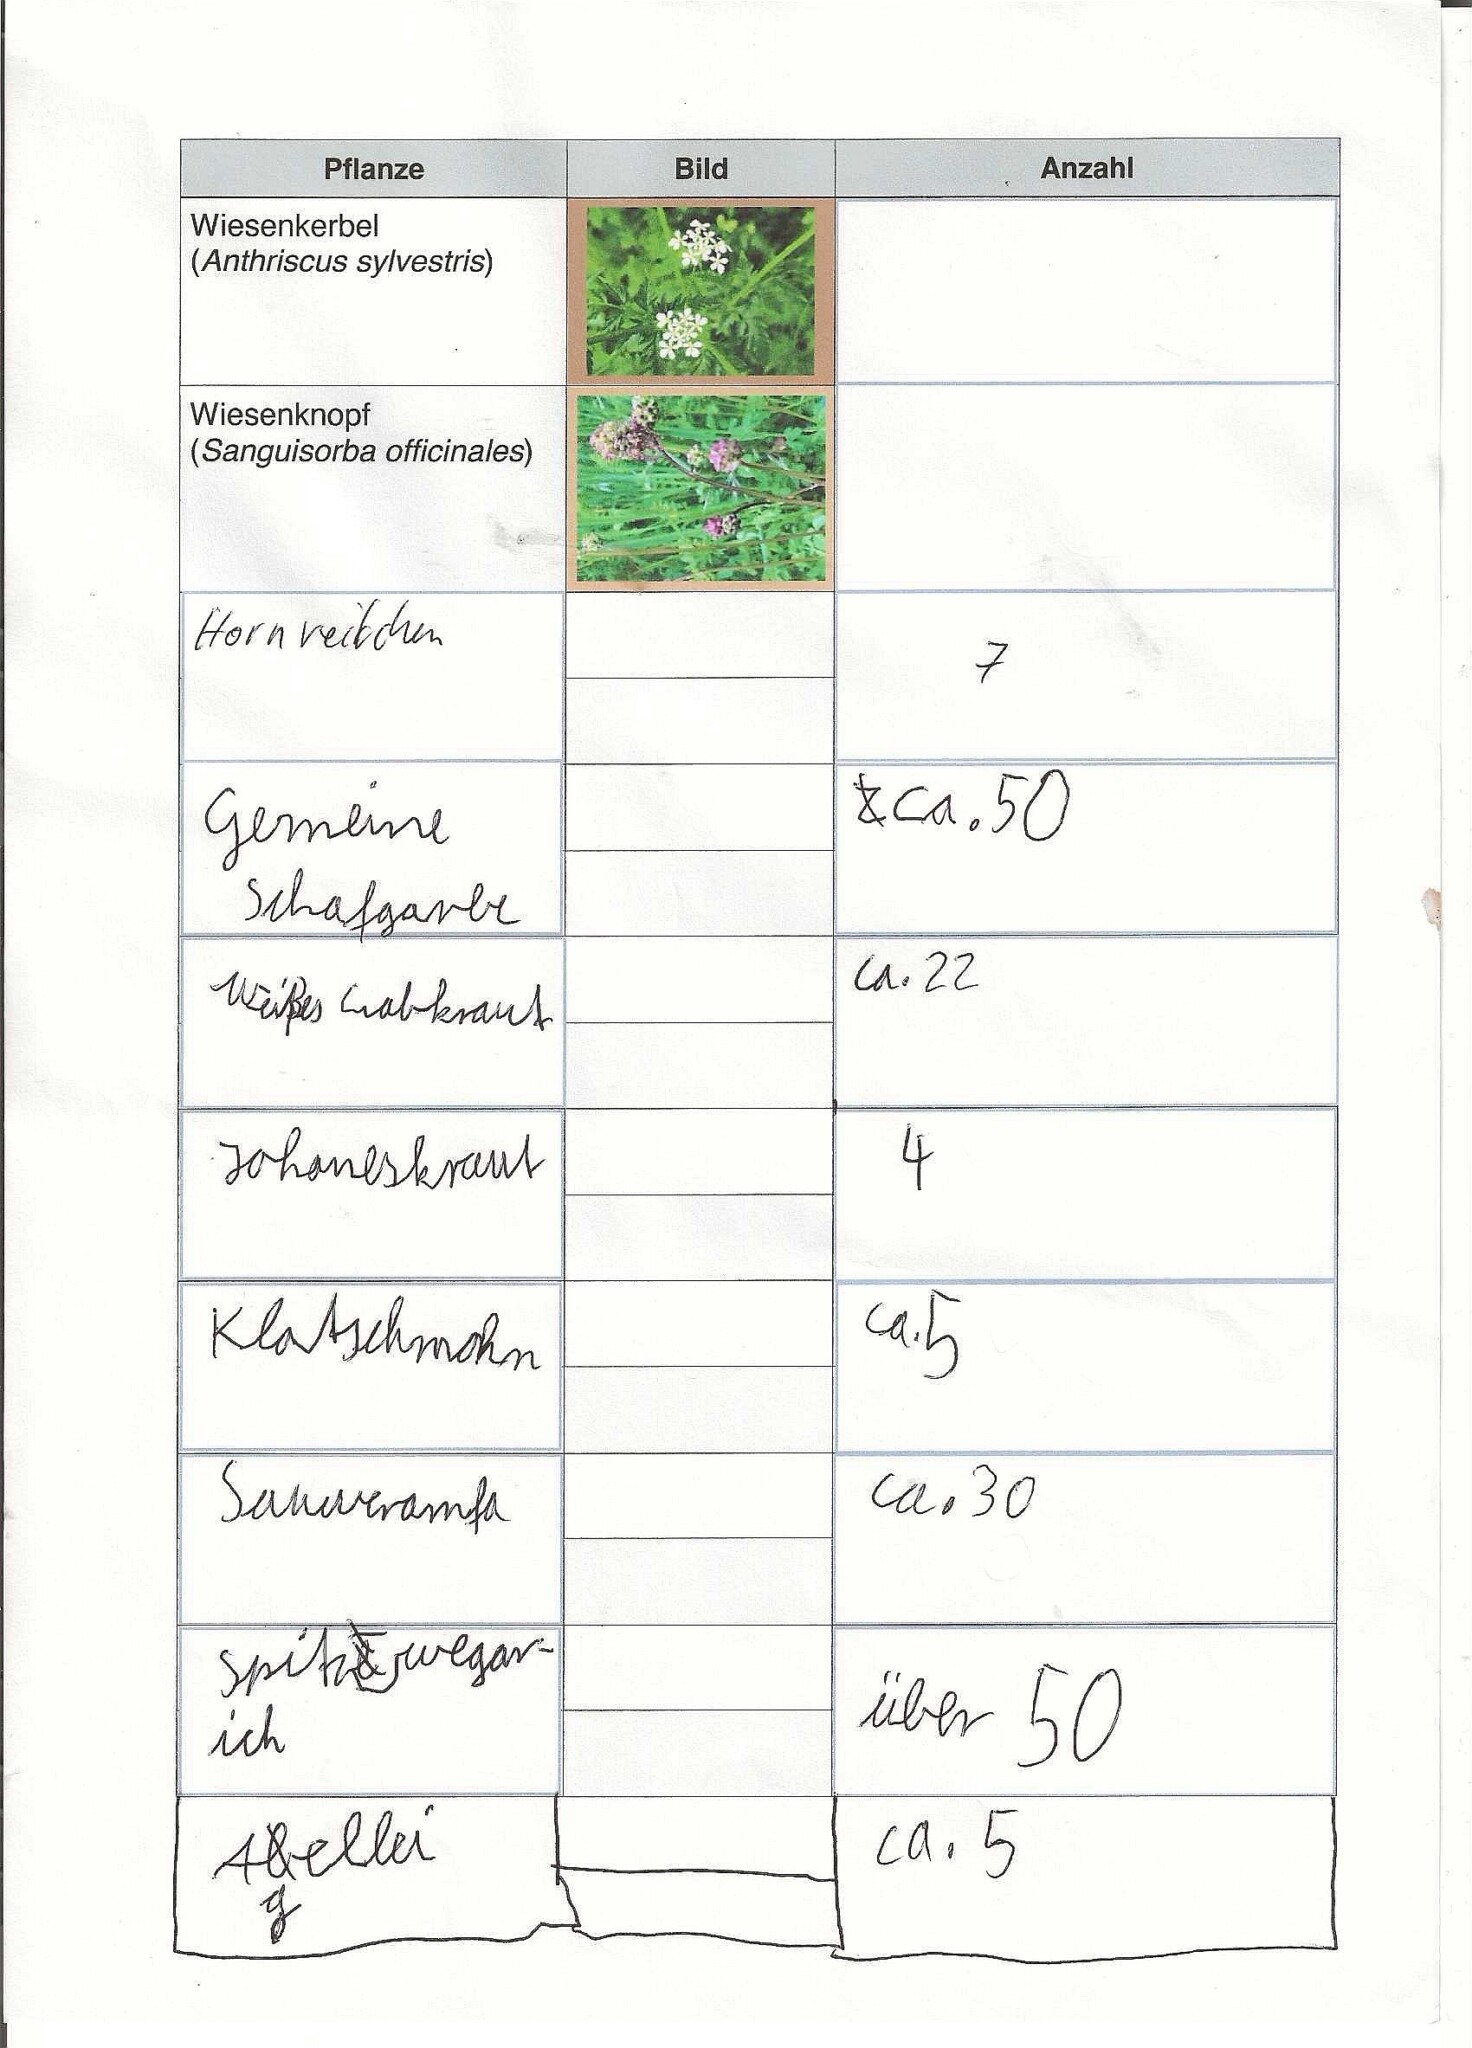 Pflanze Bild Anzahl
Wiesenkerbel
(Anthriscus sylvestris)
Wiesenknopf
(Sanguisorba officinales)
Hornveilchen 7
Gemeine ca. 50
Schafgarbe
Weißes Labkraut ca. 22
Johaneskraut 4
Klatschmohn ca. 5
Saueramfa ca. 30
Spitzwegar-
ich über 50
Agellei ca. 5